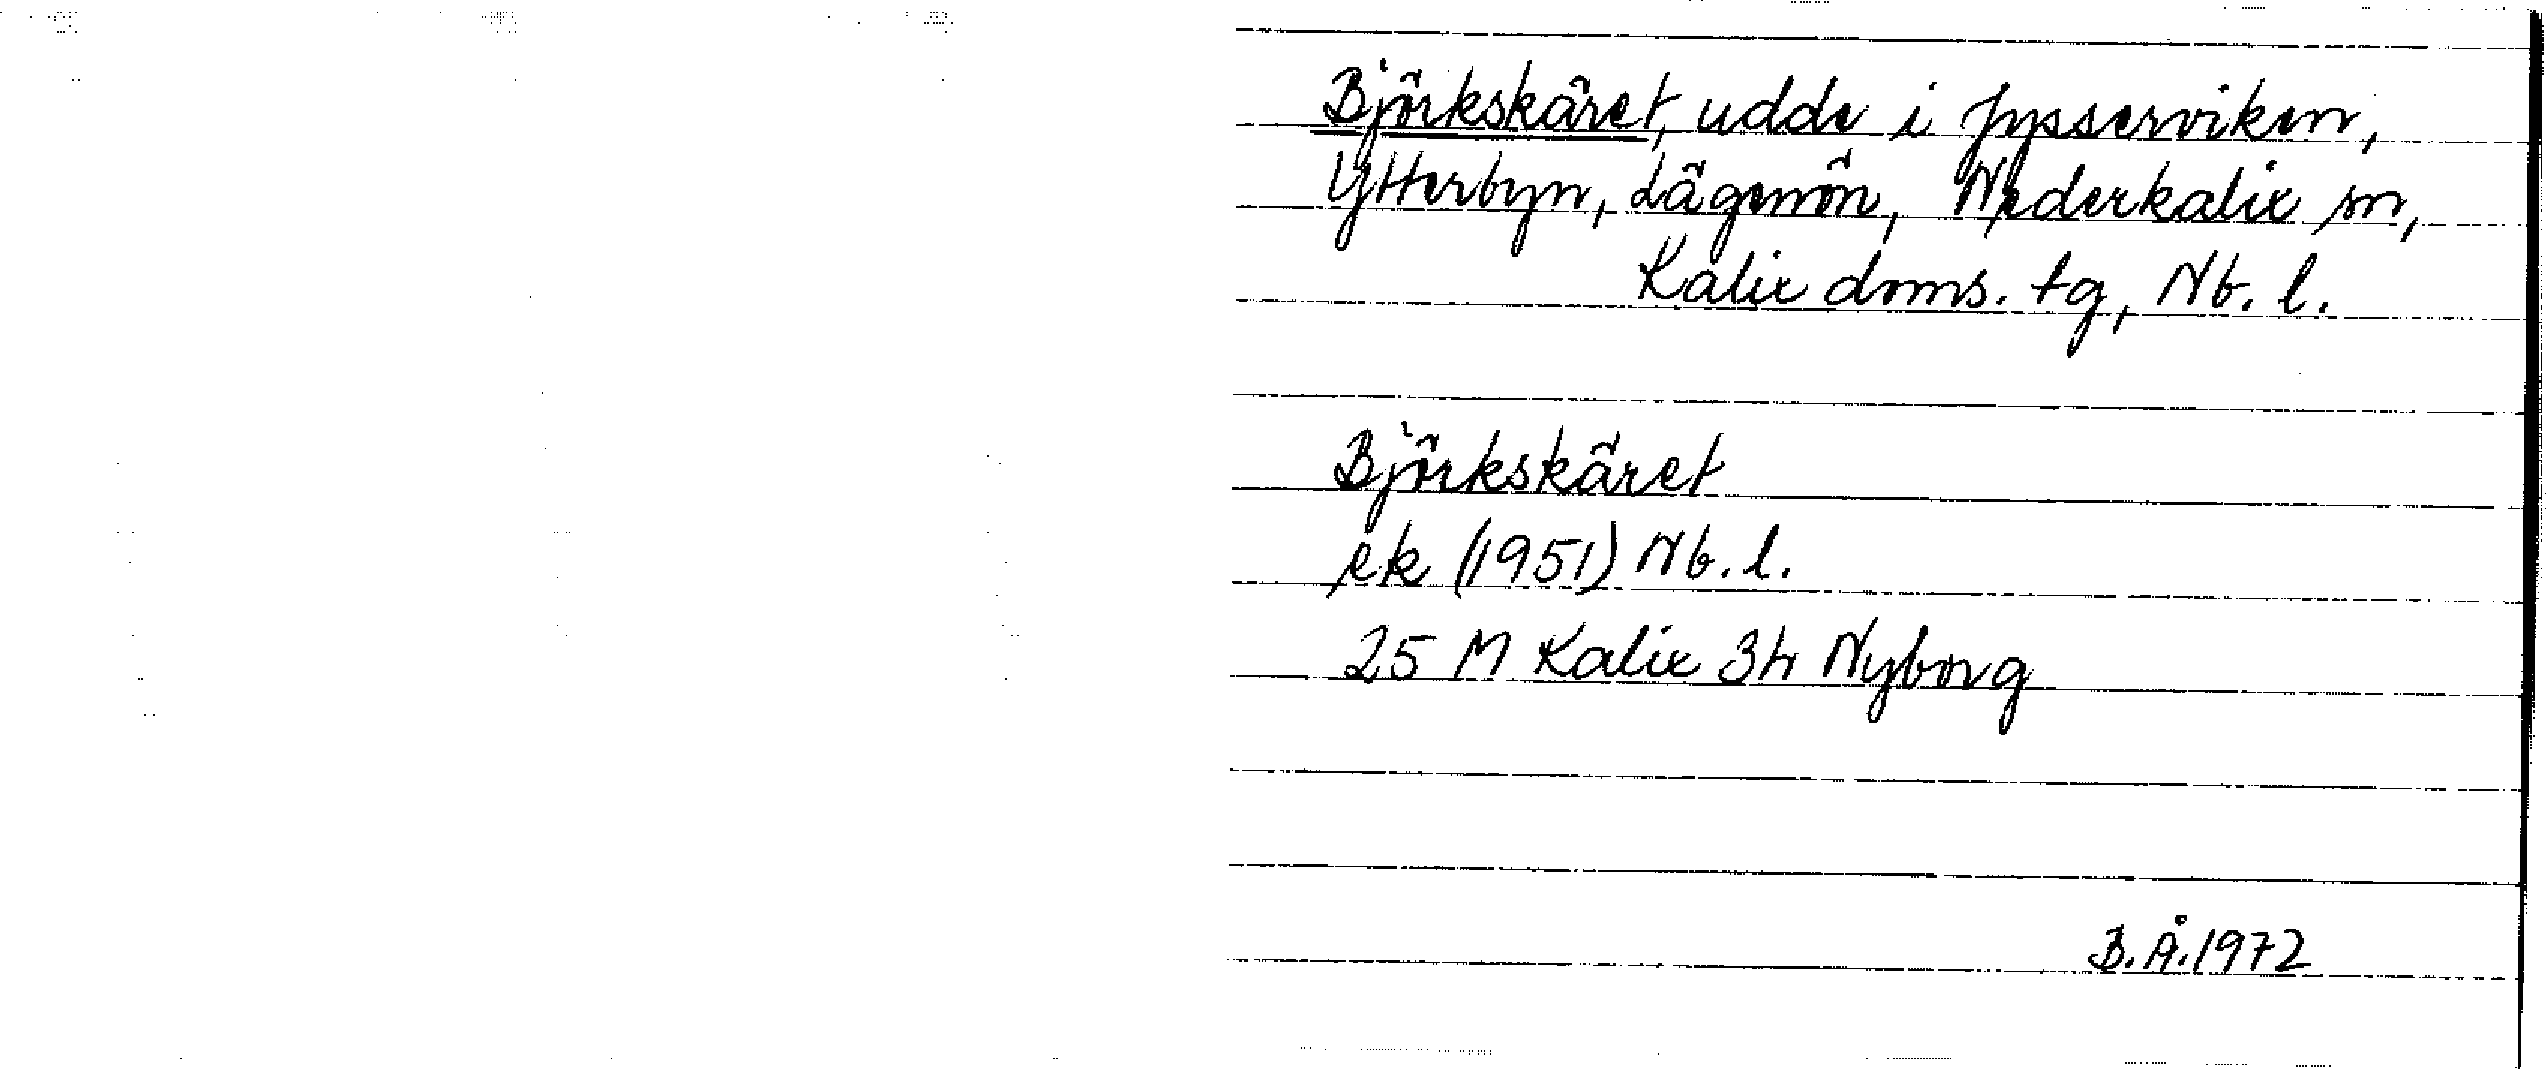 Björkskäret, udde i Jysserviken,
Ytterbyn, Lägenön, Nederkalix sn,
Kalix doms. tg, Nb. l.
Björkskäret
ek (1951) Nb. l.
25 M Kalix 3h Nyborg
B.Å.1972